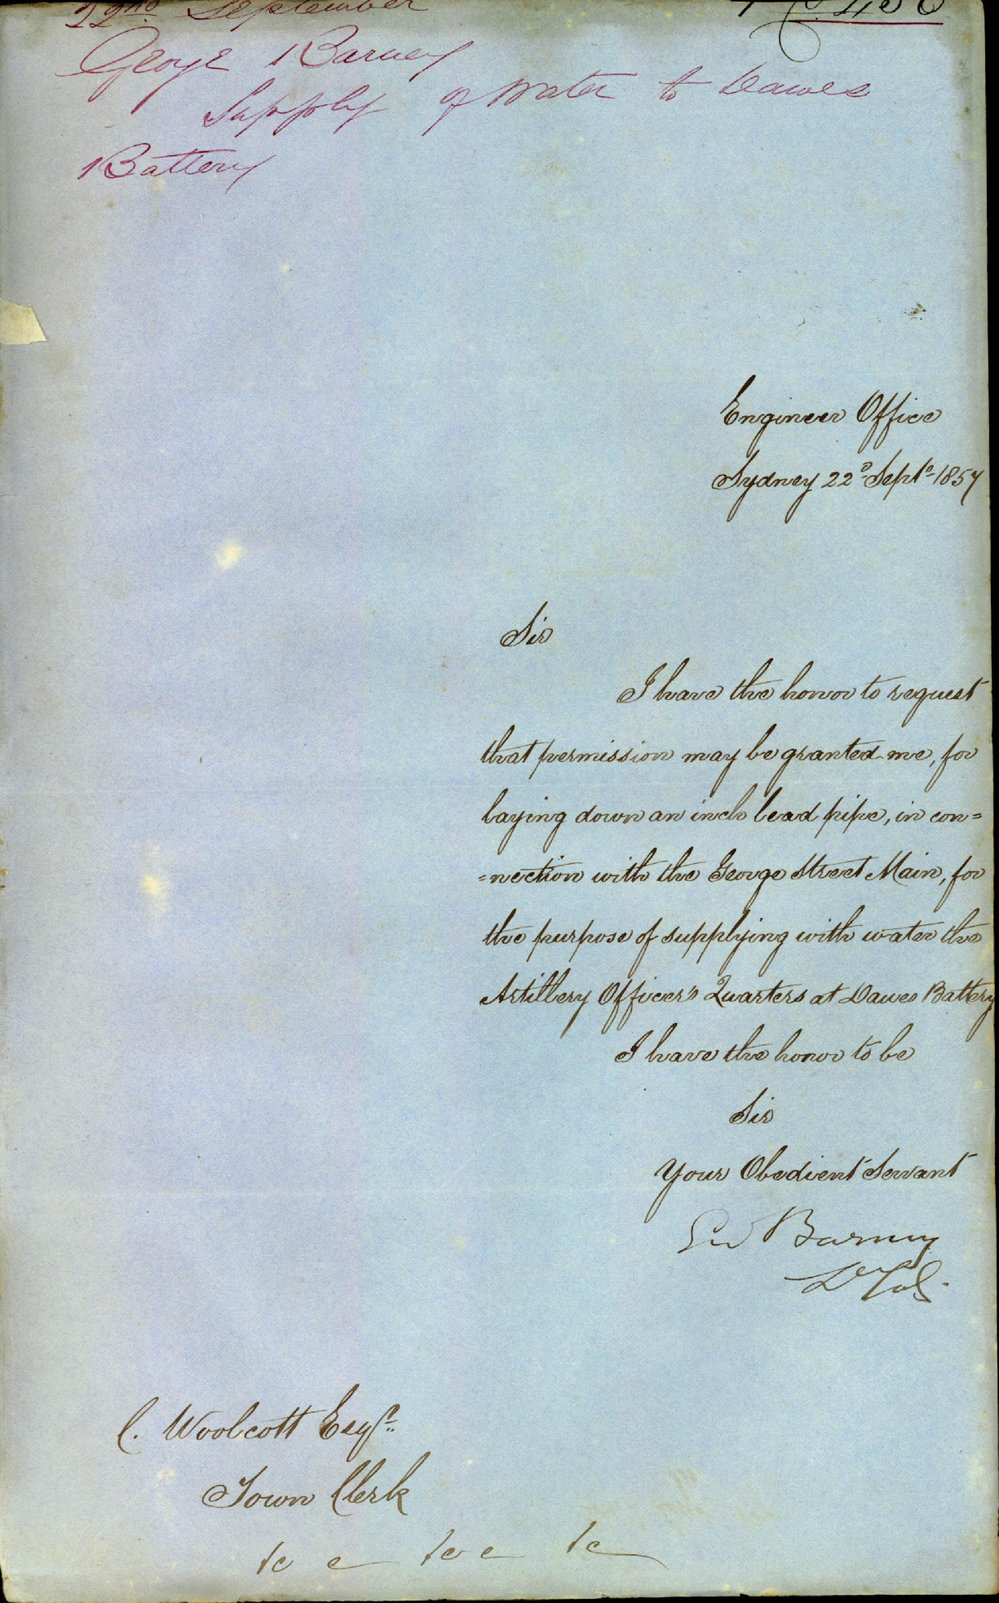 22nd September
George Barney
Supply of Water to Dawes
Battery
Engineer Office
Sydney 22d Septr 1857
Sir
I have the honor to request
that permission may be granted me, for
laying down an inch lead pipe, in con=
=nection with the George Street Main, for
the purpose of supplying with water the
Artillery Officer's Quarters at Dawes Battery
I have the honor to be
Sir
Your Obedient Servant
Geo Barney
Lt Col.
C. Woolcott Esqr.
Town Clerk